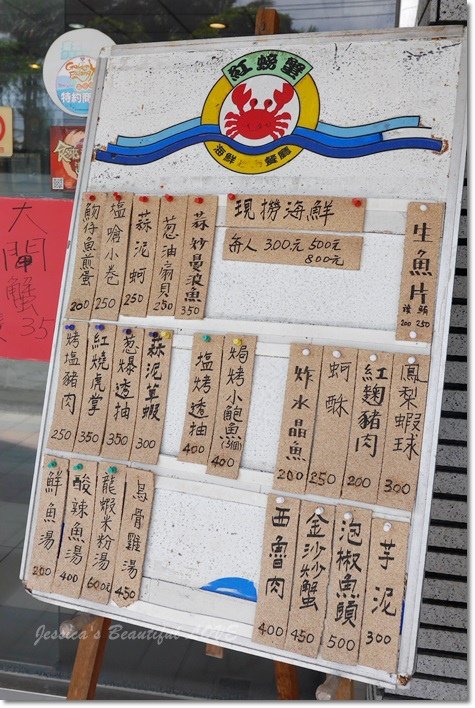 紅螃蟹
特約商
大閘蟹
35
現撈海鮮
每人 300元 500元
800元
生魚片
200 250
魩仔魚煎蛋
200
塩嗆小卷
250
蒜泥蚵
250
葱油扇貝
250
蒜炒曼波魚
350
烤塩豬肉
250
紅燒虎掌
350
葱爆透抽
350
蒜泥草蝦
300
塩烤透抽
400
焗烤小鮑魚(3個)
400
炸水晶魚
200
蚵酥
250
紅麴豬肉
200
鳳梨蝦球
300
鮮魚湯
200
酸辣魚湯
400
龍蝦米粉湯
600元
烏骨雞湯
450
西魯肉
400
金沙沙蟹
450
泡椒魚頭
500
芋泥
300
Jessica's Beautiful